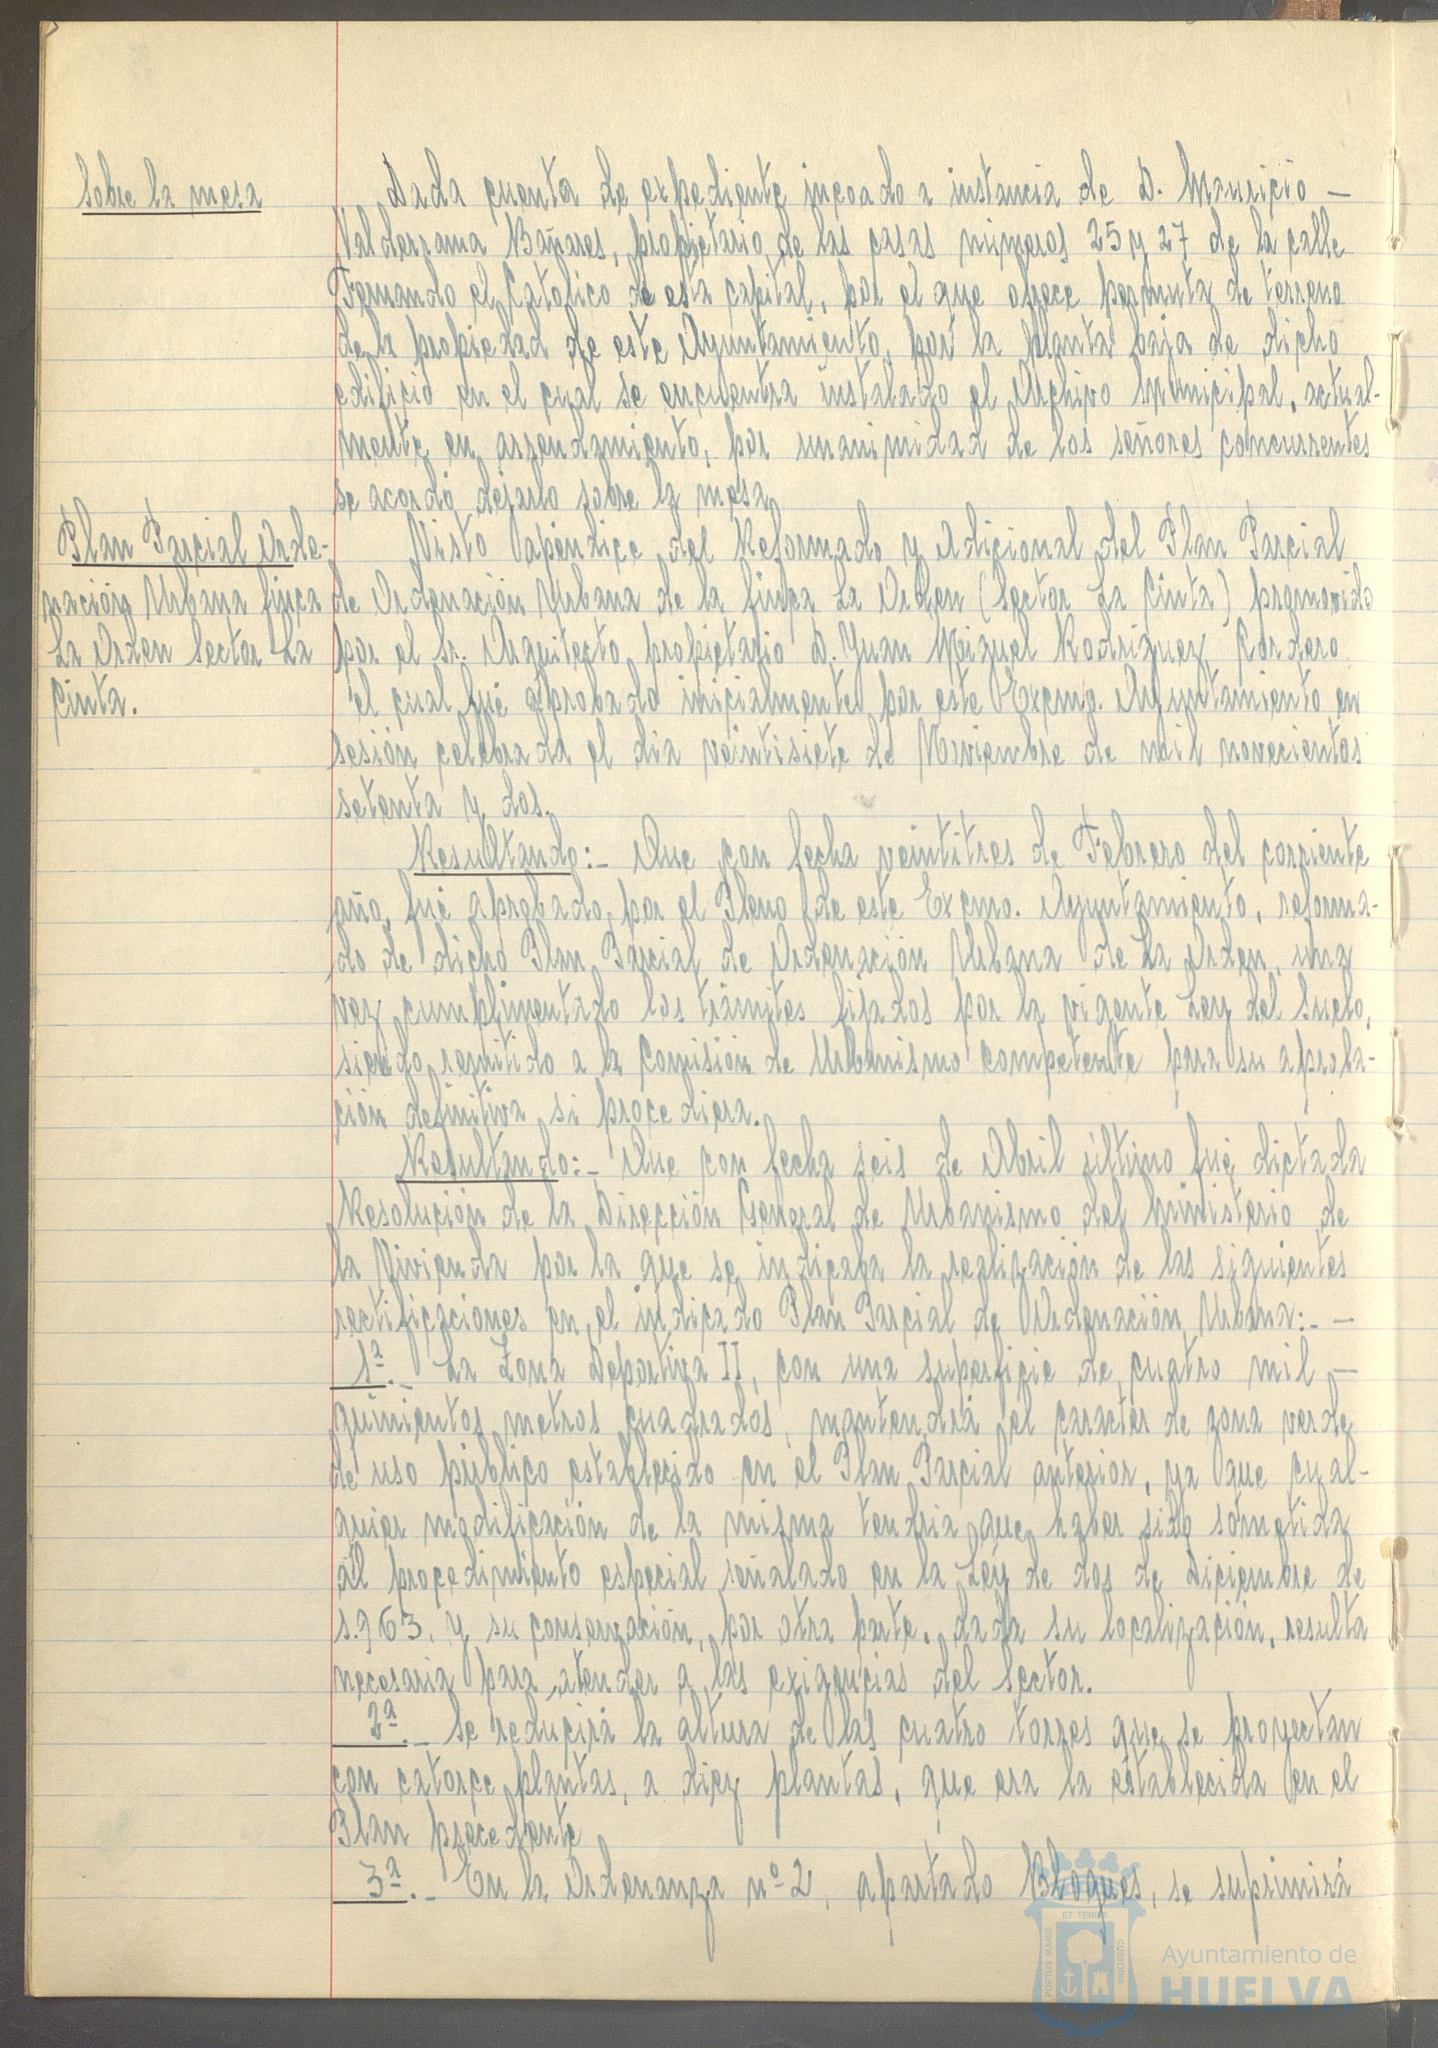 Sobre la mesa
Dada cuenta de expediente incoado a instancia de D. Mauricio —
Valderrama Bañares, propietario de las casas números 25 y 27 de la calle
Fernando el Católico de esta capital, por el que ofrece permuta de terreno
de la propiedad de este Ayuntamiento, por la planta baja de dicho
edificio en el cual se encuentra instalado el Archivo Municipal, actual-
mente en arrendamiento, por unanimidad de los señores concurrentes
se acordó dejarlo sobre la mesa
Plan Parcial Orde-
nación Urbana finca
La Orden Sector La
Cinta.
Visto apéndice del Reformado y Adicional del Plan Parcial
de Ordenación Urbana de la finca La Orden (Sector La Cinta) promovido
por el Sr. Arquitecto propietario D. Juan Miguel Rodriguez Cordero
el cual fué aprobado inicialmente por este Excmo. Ayuntamiento en
sesión celebrada el dia veintisiete de Noviembre de mil novecientos
setenta y dos.
Resultando:- Que con fecha veintitres de Febrero del corriente
año, fué aprobado, por el Pleno de este Excmo. Ayuntamiento, reforma-
do de dicho Plan Parcial de Ordenación Urbana de La Orden, una
vez cumplimentado los trámites fijados por la vigente Ley del Suelo,
siendo remitido a la Comisión de Urbanismo competente para su aproba-
ción definitiva si procediera.
Resultando:- Que con fecha seis de Abril último fué dictada
Resolución de la Dirección General de Urbanismo del Ministerio de
la Vivienda por la que se indicaba la realización de las siguientes
rectificaciones en el indicado Plan Parcial de Ordenación Urbana:- —
1ª.- La Zona Deportiva II, con una superficie de cuatro mil —
quinientos metros cuadrados, mantendrá el caracter de zona verde
de uso público establecido en el Plan Parcial anterior, ya que cual-
quier modificación de la misma tendria que haber sido sometida
al procedimiento especial señalado en la Ley de dos de Diciembre de
1.963, y su conservación, por otra parte, dada su localización, resulta
necesaria para atender a las exigencias del Sector.
2ª.- Se reducirá la altura de las cuatro torres que se proyectan
con catorce plantas, a diez plantas, que era la establecida en el
Plan precedente
3ª.- En la Ordenanza nº 2, apartado Bloques, se suprimirá
ET TERRE
PORTUS MARIS
CUSTODIA
Ayuntamiento de
HUELVA